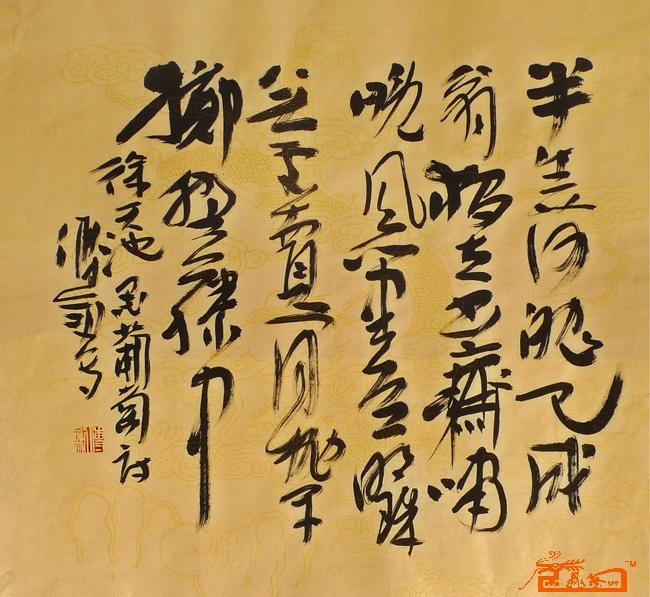 半生落魄已成
翁独立书齋啸
晚风笔底明珠
无处賣闲抛闲
擲野藤中
徐天池墨葡萄诗